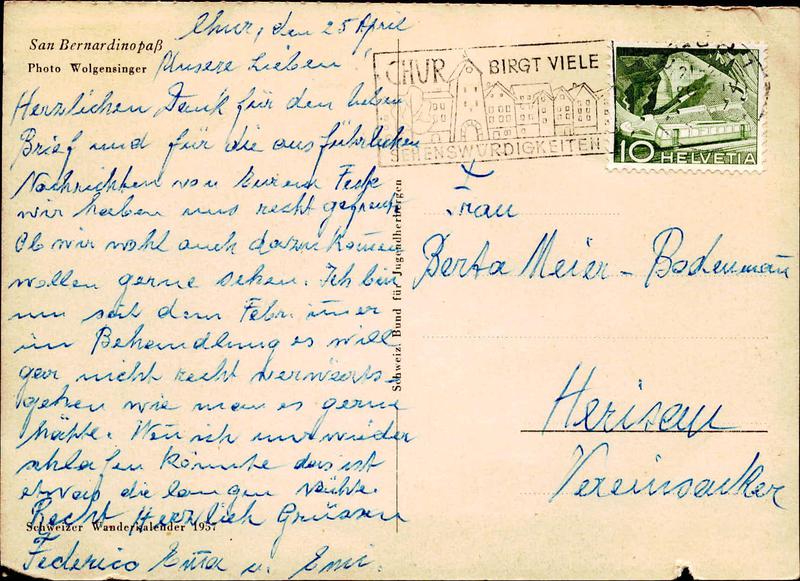 Chur, den 25 April
San Bernardinopaß
Photo Wolgensinger
Unsere Lieben!
Herzlichen Dank für den lieben
Brief und für die ausführlichen
Nachrichten von Eurem Feste
wir haben uns recht gefreut
Ob wir wohl auch dazu kommen
wollen gerne sehen. Ich bin
nun seit dem Febr. immer
in Behandlung es will
gar nicht recht verwerts
gehen wie man es gerne
hätte. Wen ich nur wieder
schlafen könnte das ist
etwas die langen Nächte.
Recht Herzlich Grüssen
Schweizer Wanderkalender 1957
Federico Emi.
Schweiz. Bund für Jugendherbergen
CHUR BIRGT VIELE
SEHENSWÜRDIGKEITEN
10 HELVETIA
Frau
Berta Meier - Bodenmann
Herisau
Vereinsacker